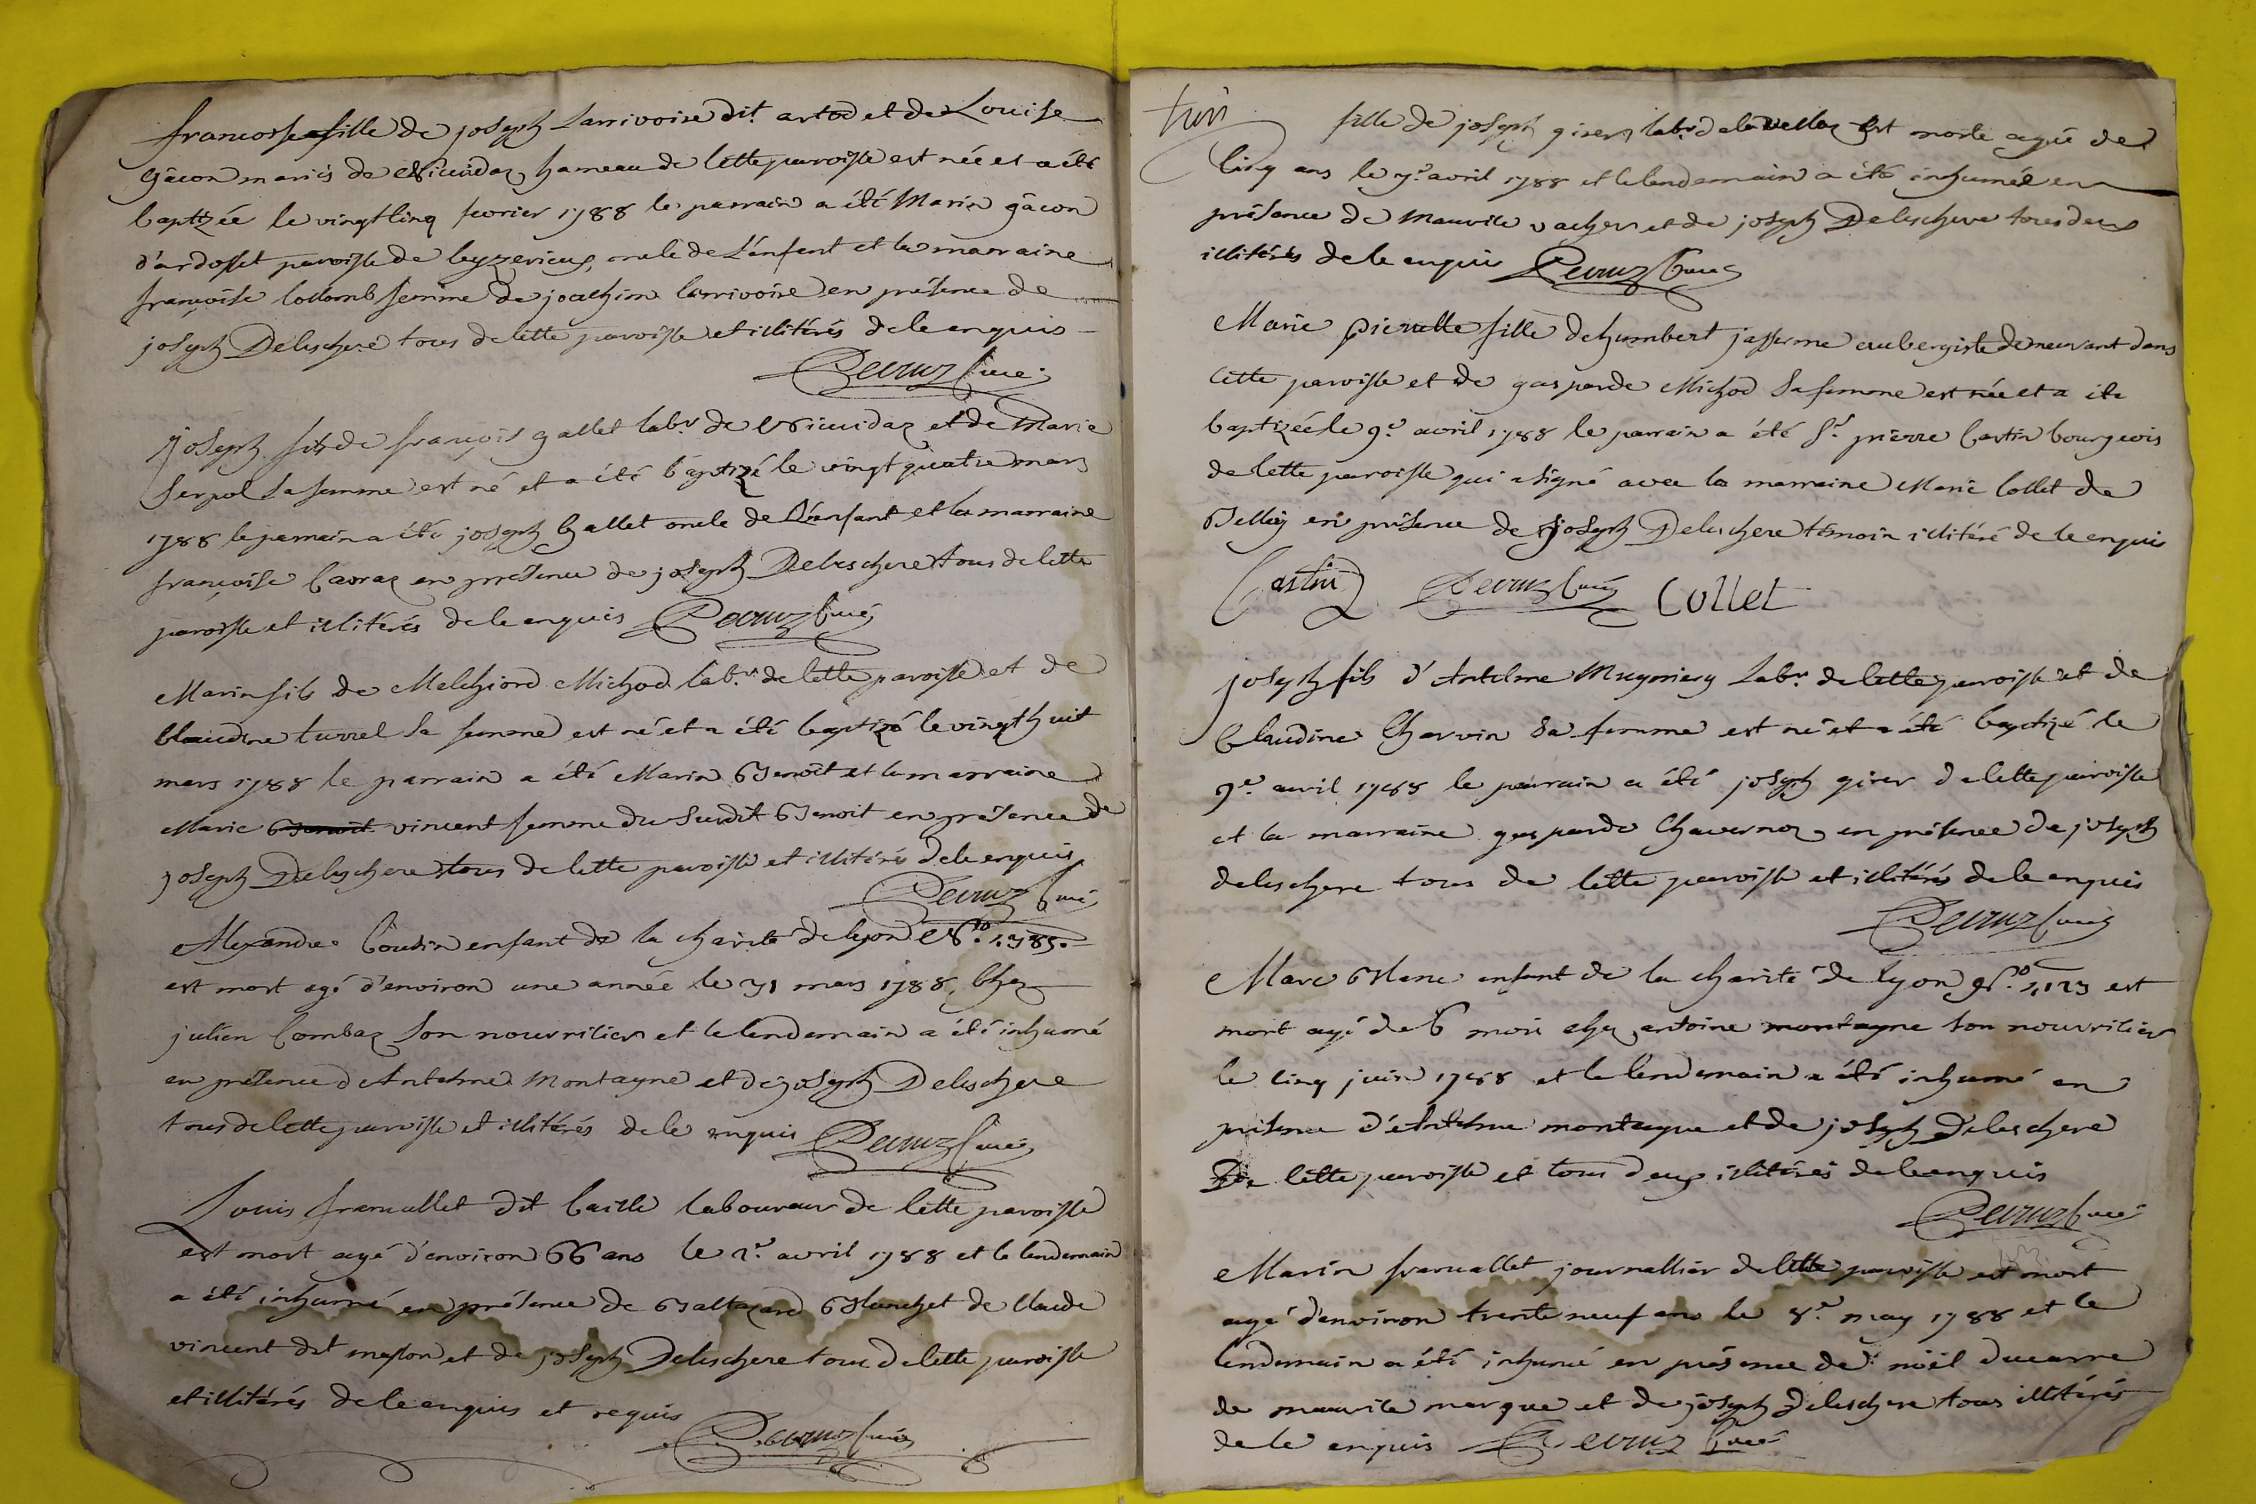 francoise fille de joseph Larrivoire dit artod et de Louise
gâcon mariés de hameau de cette paroisse est née et a été
baptizée le vingtcinq fevrier 1788 le parrain a été Marin gâcon
d'ardosset paroisse de leyzerieux, oncle de L'enfant et la marraine
françoise collomb femme de joachim larrivoire en présence de
joseph Delescheré tous de cette paroisse et illitérés de ce enquis
Decruz Curé
joseph fils de françois gallet labr. de et de Marie
Serpol sa femme est né et a été baptizé le vingt quatre mars
1788 le parrain a été joseph Gallet oncle de L'enfant et la marraine
françoise Cavraz en présence de joseph Deleschere tous de cette
paroisse et illitérés de ce enquis Decruz Curé
Marin fils de Melchiord Michod labr. de cette paroisse et de
Claudine turrel sa femme est né et a été baptizé le vingthuit
mars 1788 le parrain a été Marin Benoit et la marraine
Marie Benoit vincent femme du Susdit Benoit en présence de
joseph Deleschere tous de cette paroisse et illitérés de ce enquis
Decruz Curé
Alexandre Coudin enfant de la charité de lyon No. 1785.
est mort agé d'environ une année le 31 mars 1788 chez
julien Combaz son nourricier et le lendemain a été inhumé
en présence d'Antelme Montagne et de joseph Deleschere
tous de cette paroisse et illitérés de ce enquis Decruz Curé
Louis francallet dit Caille laboureur de cette paroisse
est mort agé d'environ 66 ans le 2e. avril 1788 et le lendemain
a été inhumé en présence de Baltazard Blanchet de Claude
vincent dit masson et de joseph Deleschere tous de cette paroisse
et illitérés de ce enquis et requis
Decruz Curé
fille de joseph girer labr. de est morte agée de
Cinq ans le 7e. avril 1788 et le lendemain a été inhumée en
présence de Maurice vacher et de joseph Deleschere tous deux
illitérés de ce enquis Decruz Curé
Marie pierrette fille de humbert jasserme aubergiste demeurant dans
cette paroisse et de gasparde Michod sa femme est née et a été
baptizée le 9e. avril 1788 le parrain a été Sr. pierre Castin bourgeois
de cette paroisse qui a signé avec la marraine Marie Collet de
Belley en présence de joseph Deleschere témoin illitéré de ce enquis
Castin Decruz Curé Collet
joseph fils d'Antelme Mugniery Labr. de cette paroisse et de
Claudine Charvin sa femme est né et a été baptizé le
9e. avril 1788 le parrain a été joseph girer de cette paroisse
et la marraine gasparde Chavernoz en présence de joseph
deleschere tous de cette paroisse et illitérés de ce enquis
Decruz Curé
Marc Blanc enfant de la charité de lyon No. 4123 est
mort agé de 6 mois chez antoine montagne son nourricier
le cinq juin 1788 et le lendemain a été inhumé en
présence d'Antelme montagne et de joseph Deleschere
De cette paroisse et tous deux illitérés de ce enquis
Decruz Curé
Marin francallet journallier de cette paroisse est mort
agé d'environ trente neuf ans le 8e. may 1788 et le
lendemain a été inhumé en présence de noël ducarre
de maurice marque et de joseph deleschere tous illitérés
de ce enquis Decruz Curé